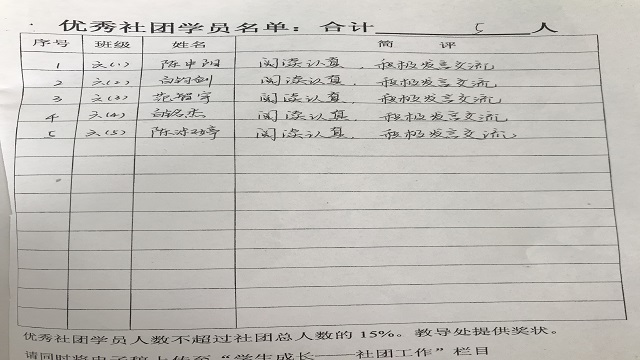 优秀社团学员名单：合计 5 人
序号 班级 姓名 简评
1 六(1) 陈中阳 阅读认真，积极发言交流
2 六(2) 白钧剑 阅读认真，积极发言交流
3 六(3) 范智宇 阅读认真，积极发言交流
4 六(4) 白铭杰 阅读认真，积极发言交流
5 六(5) 陈婷 阅读认真，积极发言交流
优秀社团学员人数不超过社团总人数的 15%。教导处提供奖状。
请同时将电子稿上传至“学生成长——社团工作”栏目